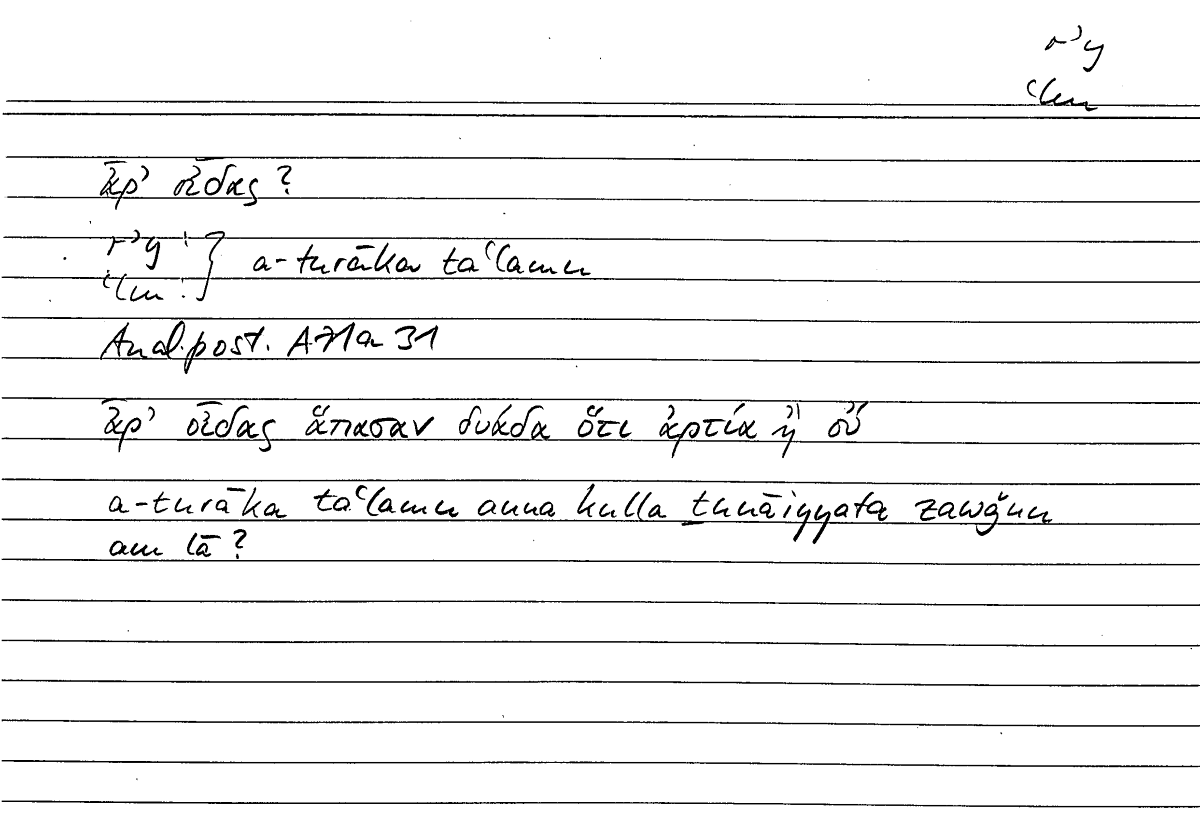 rʾy
ʿlm
ἆρ’ οἶδας?
rʾy :
ʿlm : } a-turāka taʿlamu
Anal.post. A71a 31
ἆρ’ οἶδας ἅπασαν δυάδα ὅτι ἀρτία ἢ οὔ
a-turāka taʿlamu anna kulla ṯunāiyyata zawǧun
am lā?